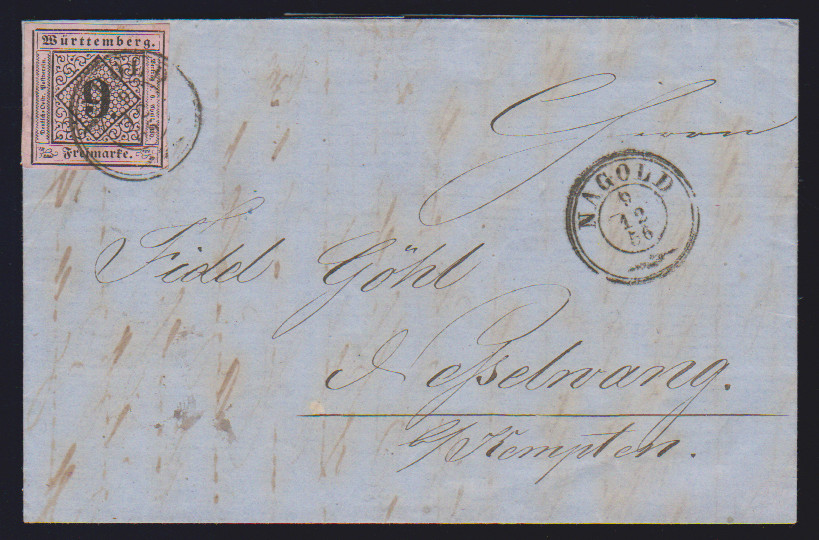 Württemberg.
9
Freimarke.
Herrn
NAGOLD
6
12
56
Fidel Göhl
Nesselwang.
b/Kempten.